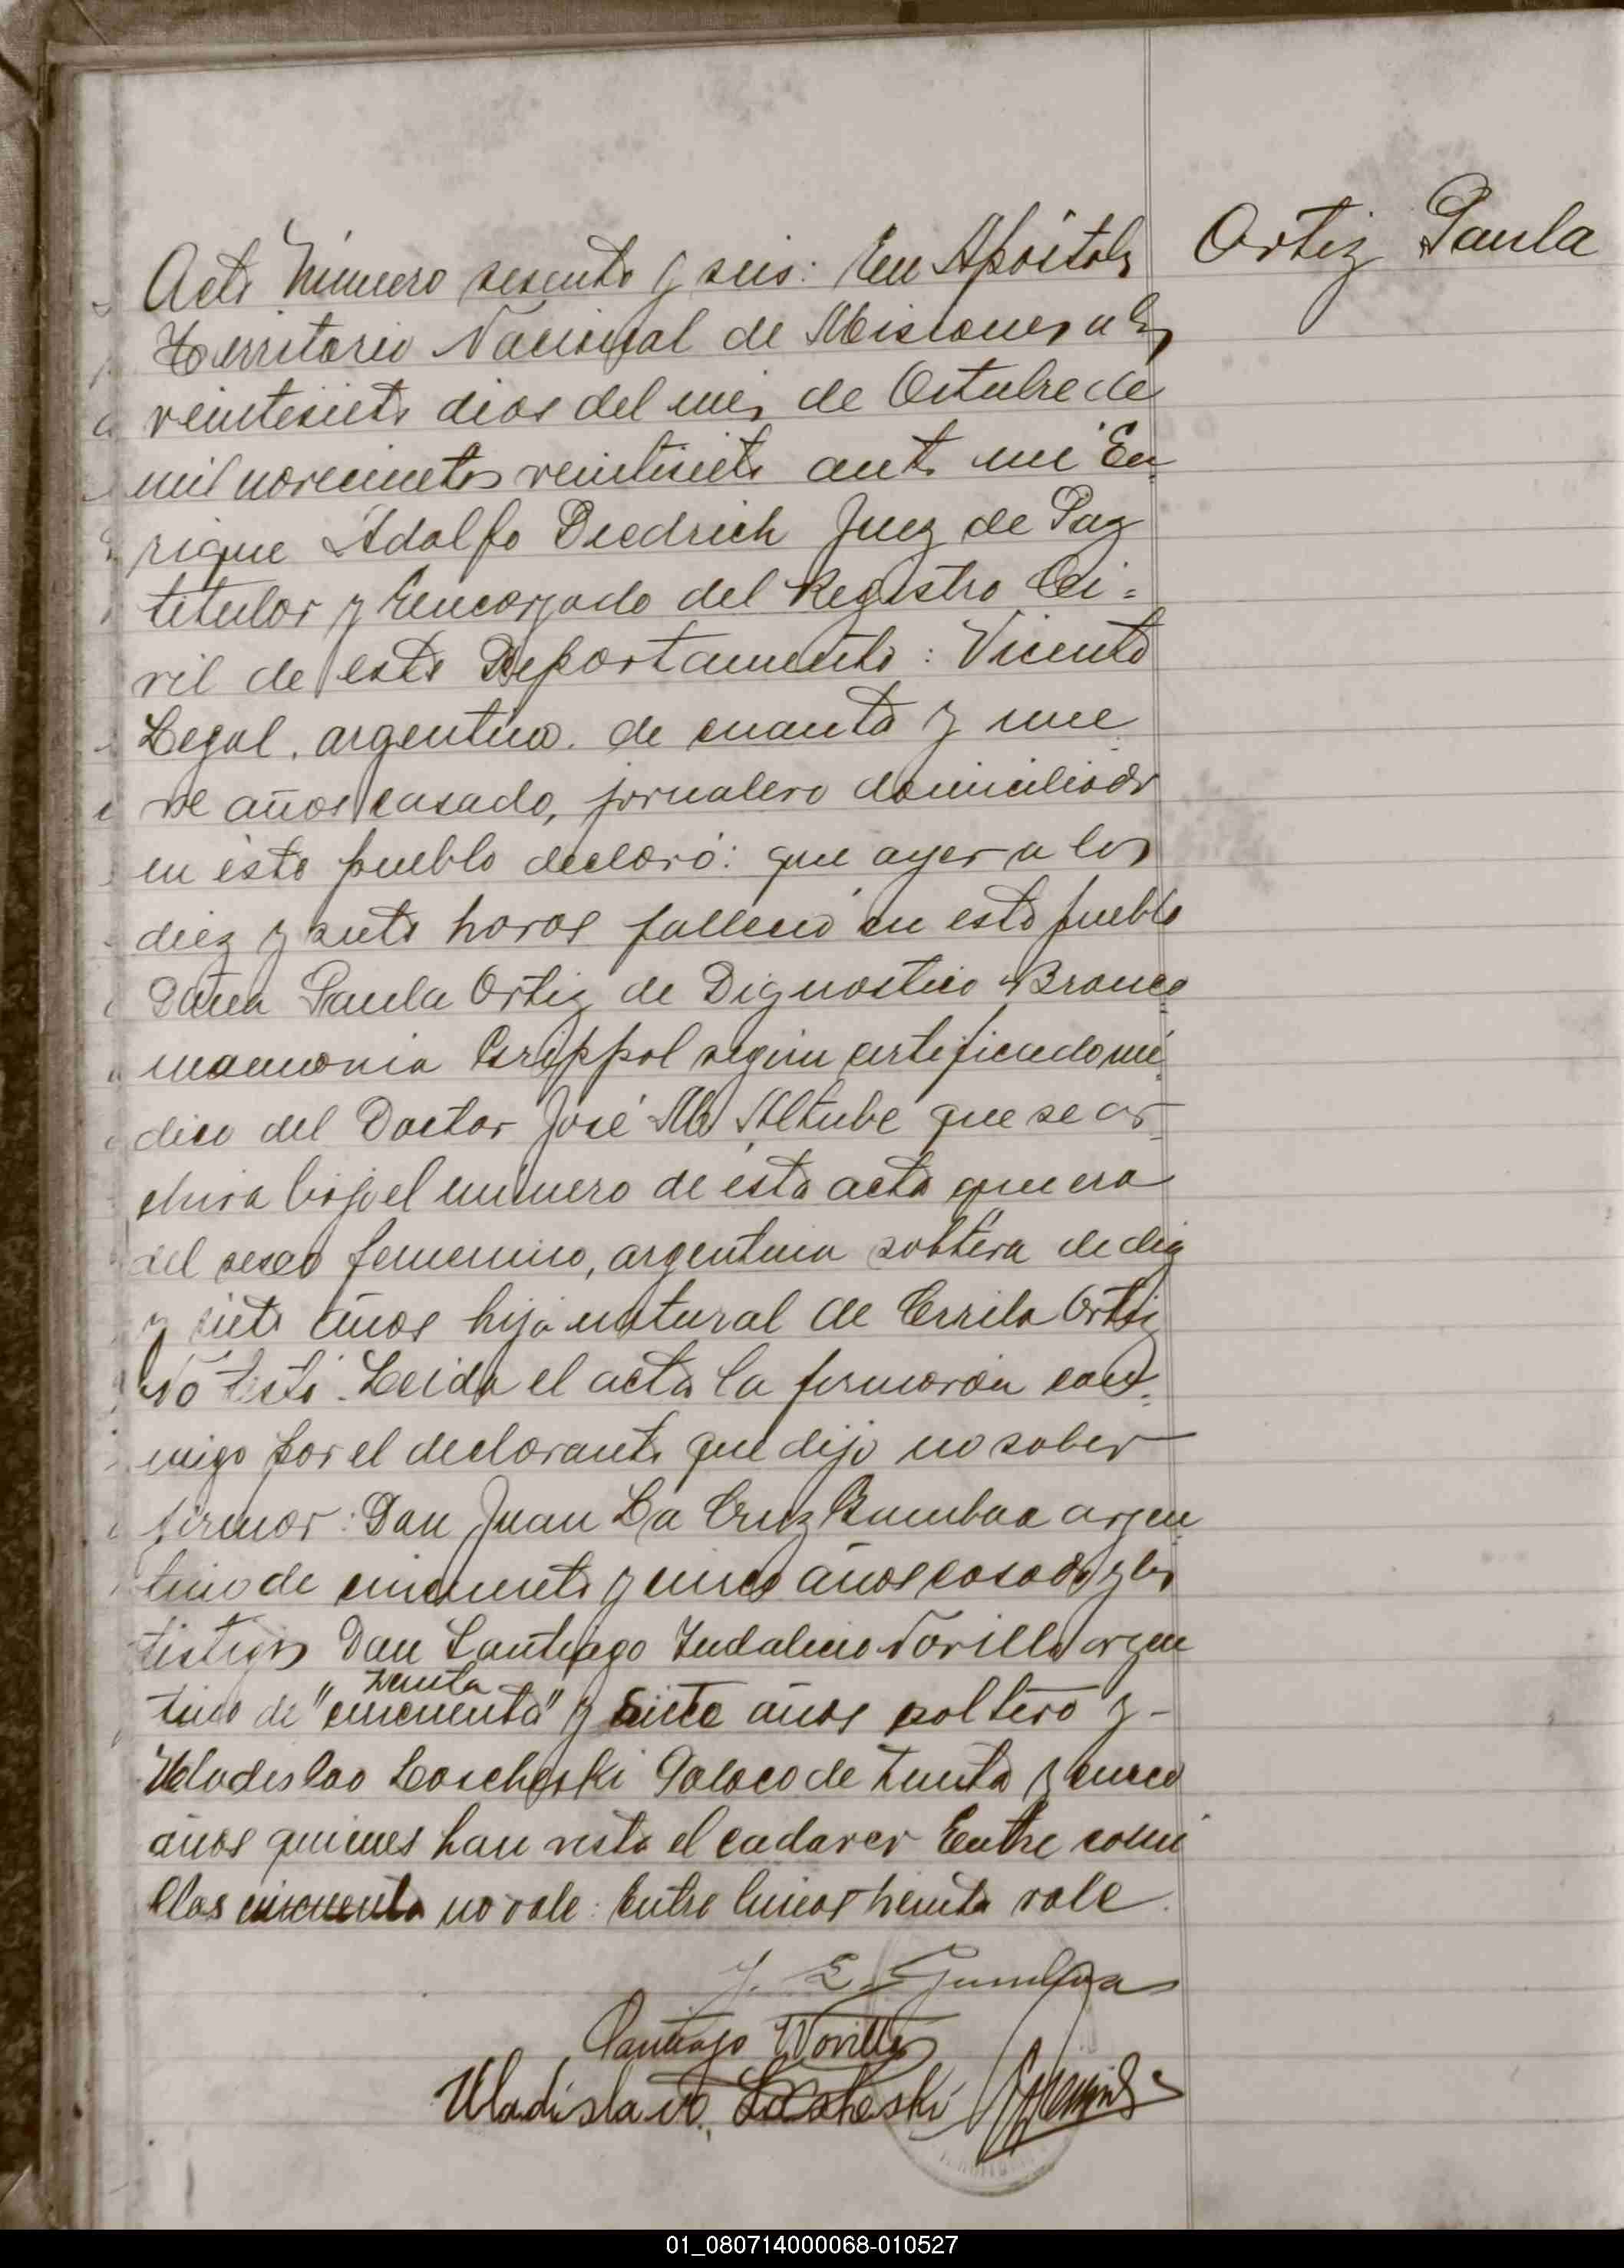 Ortiz Paula
Acta Número sesenta y seis: En Apóstoles
Territorio Nacional de Misiones a los
veintisiete dias del mes de Octubre de
mil novecientos veintisiete ante mi En
rique Adolfo Diedrich Juez de Paz
titular y Encargado del Registro Ci=
vil de este Departamento: Vicente
Legal, argentino, de cuarenta y nue
ve años casado, jornalero domiciliado
en éste pueblo declaró: que ayer a las
diez y siete horas falleció en este pueblo
Doña Paula Ortiz de Dignostico Bronco
mamonia Grippal según certificado mé
dico del Doctor José M. Altube que se ar
chiva bajo el número de ésta acta que era
del sexo femenino, argentina soltera de diez
y siete años hija natural de Ortiz
No testó. Leida el acta la firmaron con
migo por el declarante que dijo no saber
firmar: Don Juan La Cruz argen
tino de cincuenta y cinco años casado y los
testigos Don Santiago Indalecio Norille argen
treinta
tino de "cincuenta" y siete años soltero y-
Uladislao Loscheski Polaco de treinta y cinco
años quienes han visto el cadaver Entre comi
llas cincuenta no vale: Entre lineas treinta vale.
Santiago Norille
Uladislao Loscheski
01_080714000068-010527